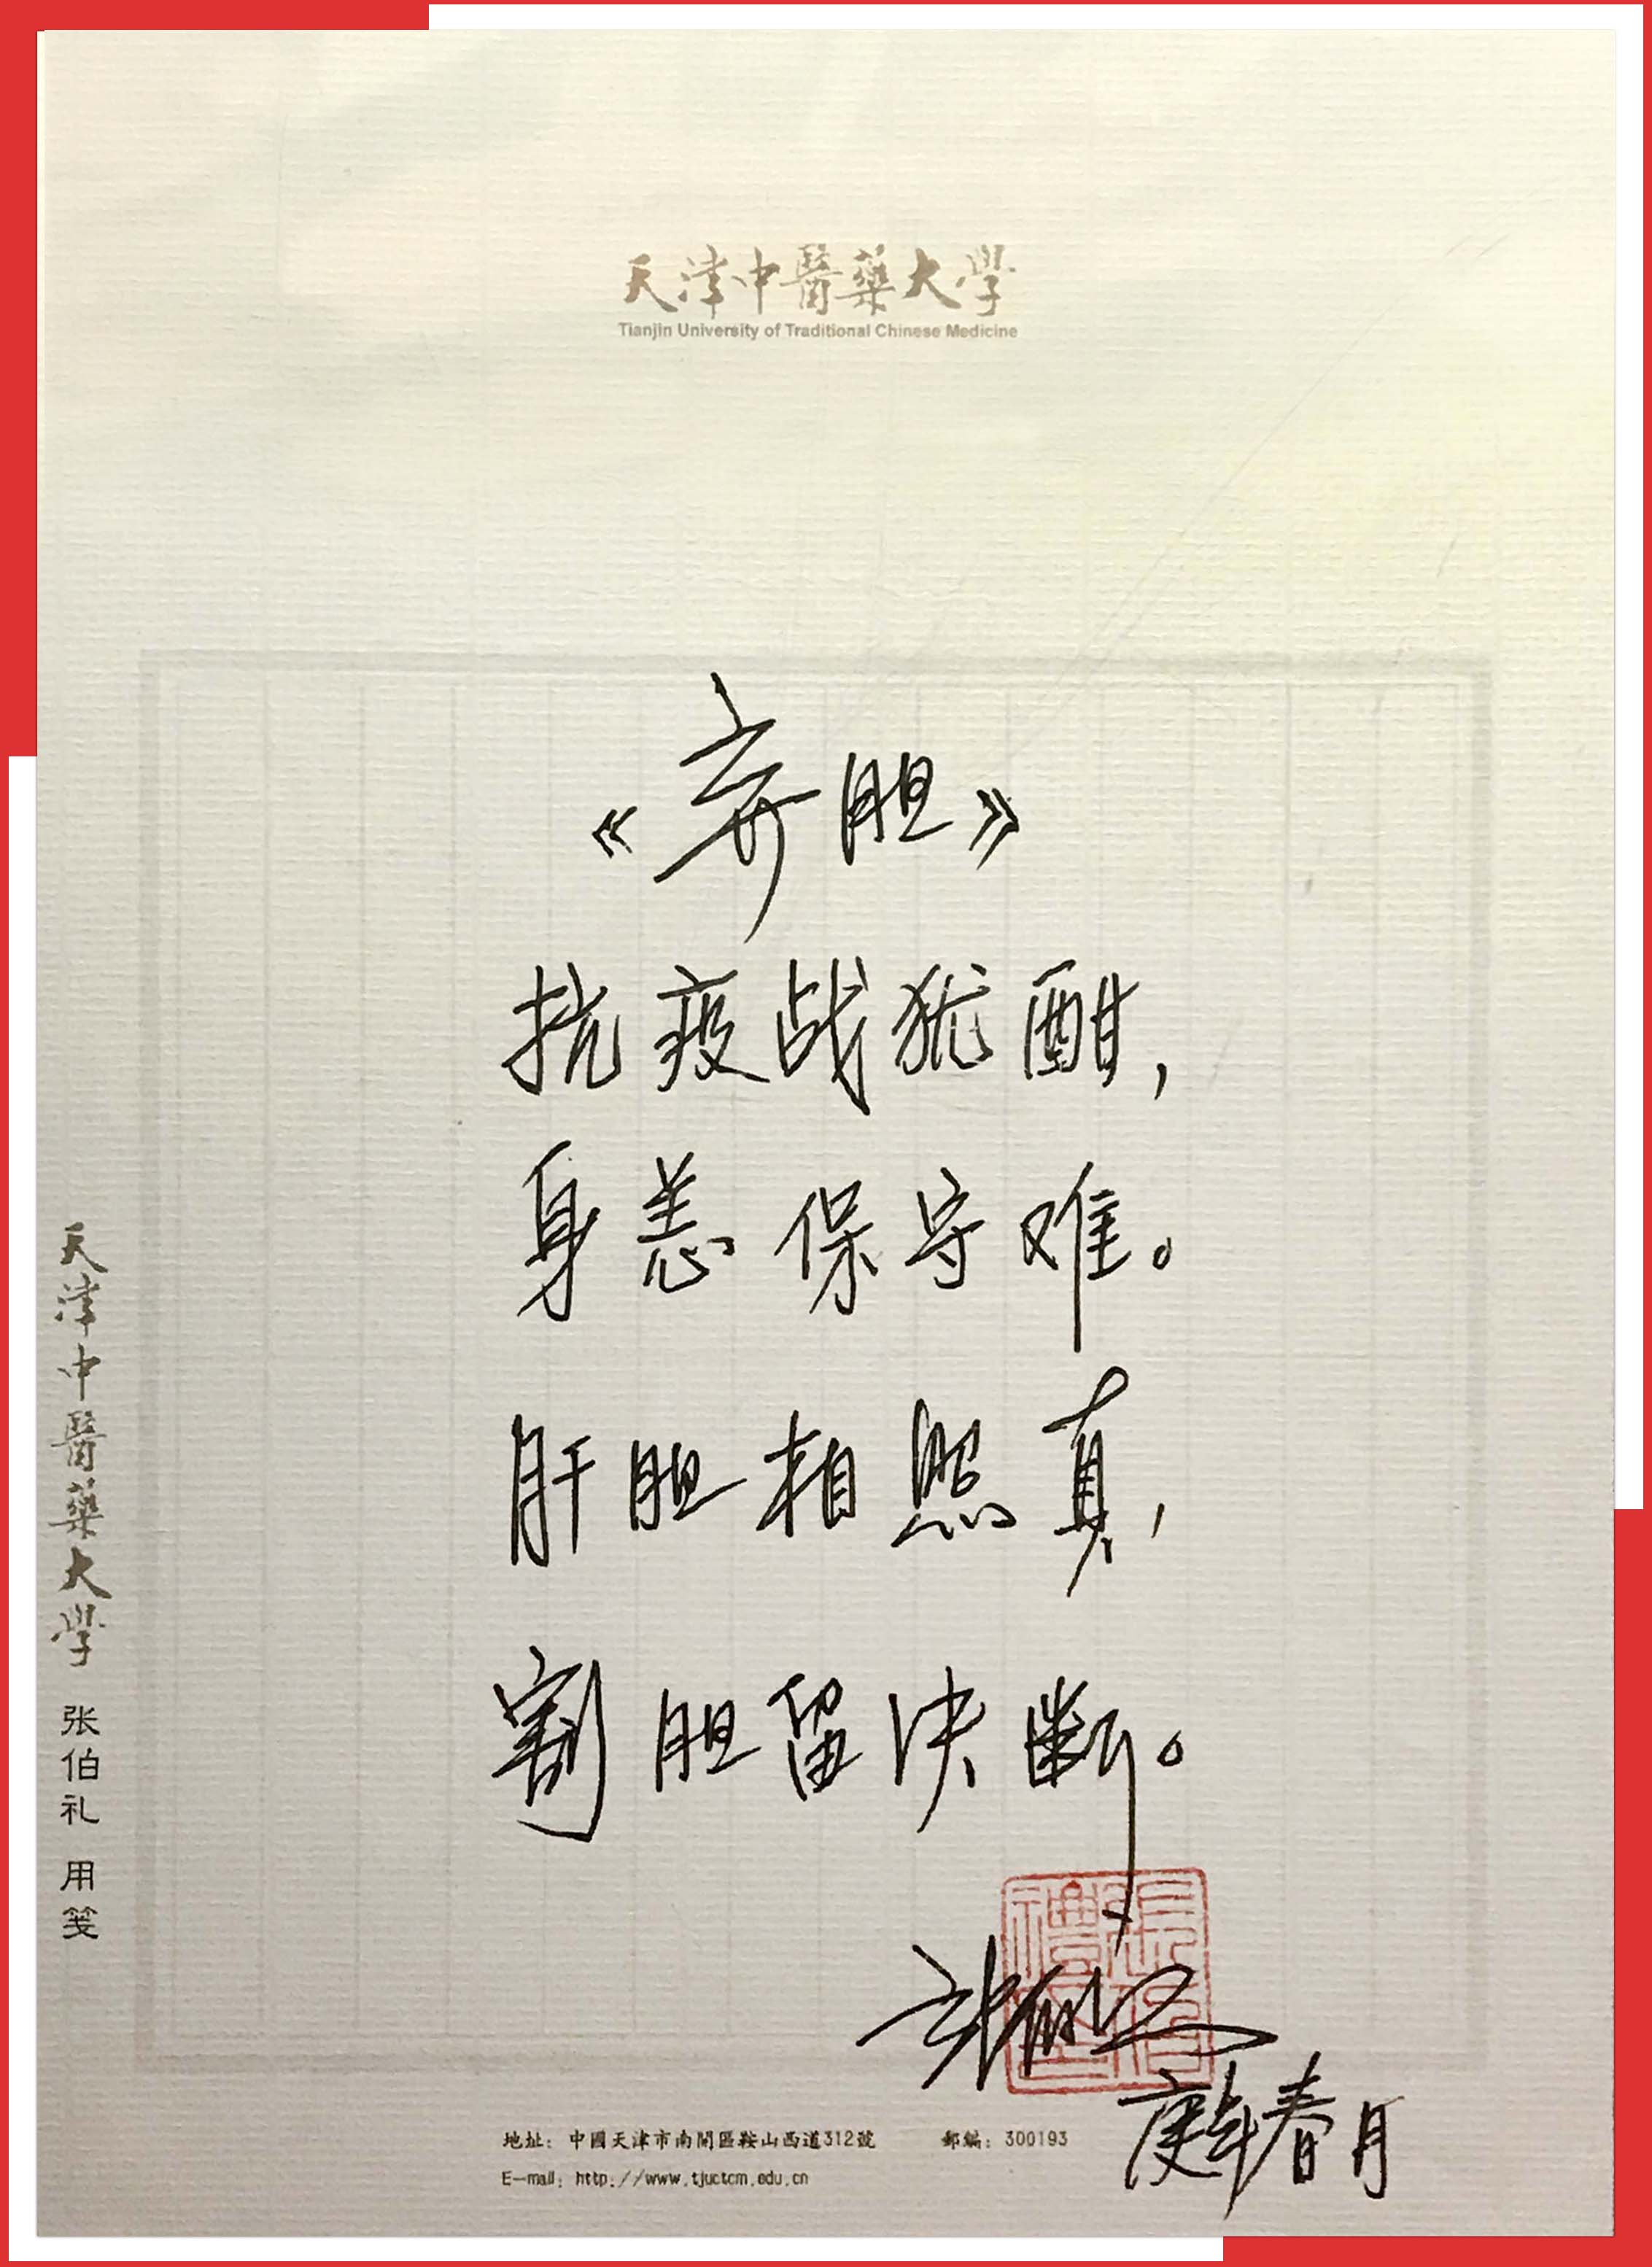 天津中醫藥大學
Tianjin University of Traditional Chinese Medicine
《弃胆》
抗疫战犹酣，
身恙保守难。
肝胆相照真，
割胆留决断。
张伯礼
庚子年春月
天津中醫藥大學 张伯礼 用笺
地址：中國天津市南開區鞍山西道312號 郵編：300193
E-mail：http://www.tjuctcm.edu.cn